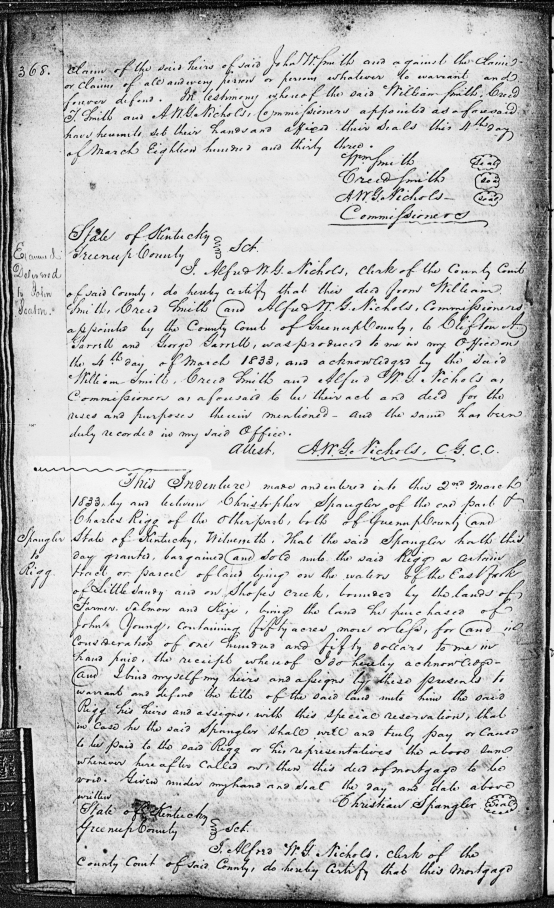 368.
claim of the said heirs of said John W Smith and against the claim
or claims of all and every person or persons whatever to warrant and
forever defend. In testimony whereof the said William Smith, Creed
Smith and A.W.G. Nichols, Commissioners appointed as aforesaid
have hereunto set their hands and affixed their seals this 4th day
of March Eighteen hundred and thirty three.
Wm Smith Seal
Creed Smith Seal
A.W.G. Nichols Seal
Commissioners
State of Kentucky
Greenup County Sct.
Delivered
to John
Seaton.
I, Alfred W. G. Nichols, clerk of the County Court
of said County, do hereby certify that this deed from William
Smith, Creed Smith and Alfred W. G. Nichols, Commissioners
appointed by the County Court of Greenup County, to Clifton
Garrett and George Garrett, was produced to me in my Office on
the 4th day of March 1833, and acknowledged by the said
William Smith, Creed Smith and Alfred W G Nichols as
Commissioners as aforesaid to be their act and deed for the
uses and purposes therein mentioned - and the same has been
duly recorded in my said Office.
Attest. A.W.G. Nichols, C.G.C.C.
This Indenture made and entered into this 2nd March
1833, by and between Christopher Spangler of the one part &
Charles Rigg of the other part, both of Greenup County and
State of Kentucky, Witnesseth, That the said Spangler hath this
Spangler
to
Rigg
day granted, bargained and sold unto the said Rigg a certain
tract or parcel of land lying on the waters of the East fork
of Little Sandy and on Shopes creek, bounded by the lands of
Farmer, Salmon and, being the land he purchased of
John Young, containing fifty acres more or less, for and in
consideration of one hundred and fifty dollars to me in
hand paid, the receipt whereof I do hereby acknowledge
and I bind myself my heirs and assigns by these presents to
warrant and defend the title of the said land unto him the said
Rigg his heirs and assigns, with this special reservation, that
in case he the said Spangler shall well and truly pay or cause
to be paid to the said Rigg or his representatives the above sum
whenever hereafter called on, then this deed of mortgage to be
void. Given under my hand and seal the day and date above
written Christian Spangler Seal
State of Kentucky
Greenup County Sct.
I, Alfred W. G. Nichols, clerk of the
County Court of said County, do hereby certify that this mortgage